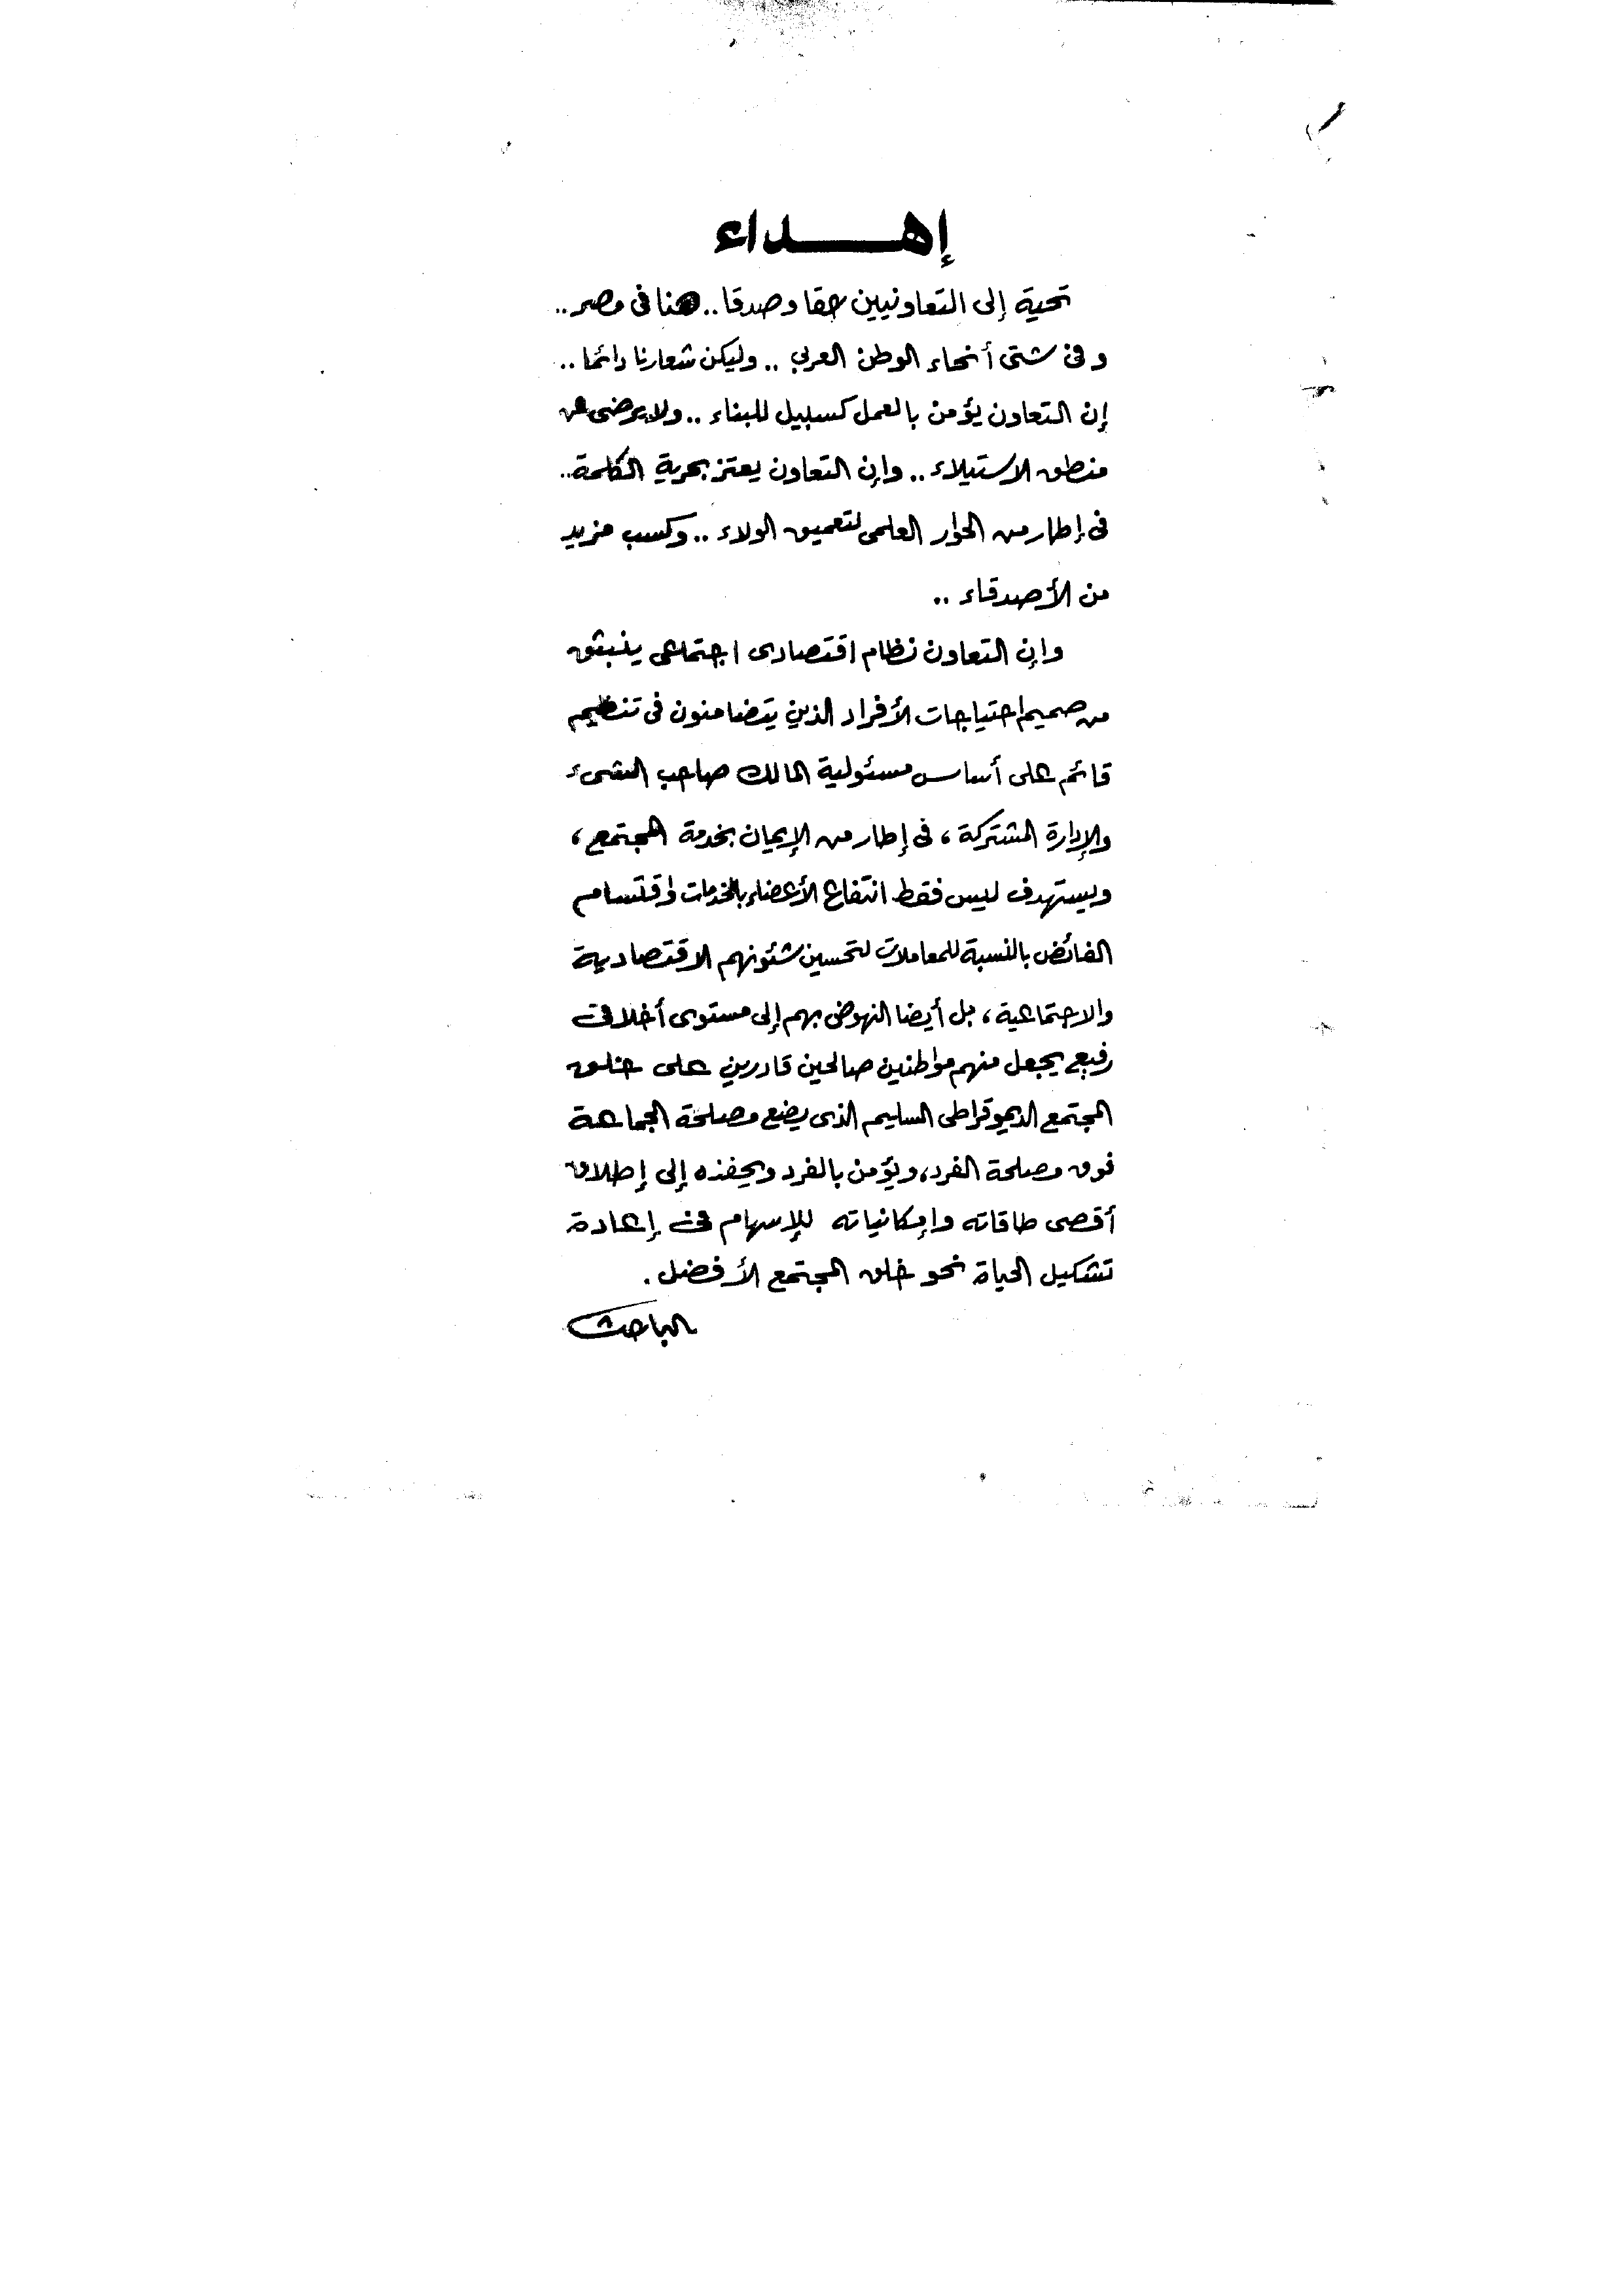 إهداء
تحية إلى التعاونيين حقا وصدقا .. هنا فى مصر ..
وفى شتى أنحاء الوطن العربى .. وليكن شعارنا دائما ..
إن التعاون يؤمن بالعمل كسبيل للبناء .. ولا يرضى عن
منطق الاستيلاء .. وإن التعاون يعتز بحرية الكلمة ..
فى إطار من الحوار العلمى لتعميق الولاء .. وكسب مزيد
من الأصدقاء ..
وإن التعاون نظام اقتصادى اجتماعى ينبثق
من صميم احتياجات الأفراد الذين يتضامنون فى تنظيم
قائم على أساس مسئولية المالك صاحب الشىء
والإدارة المشتركة ، فى إطار من الإيمان بخدمة المجتمع ،
ويستهدف ليس فقط انتفاع الأعضاء بالخدمات واقتسام
الفائض بالنسبة للمعاملات لتحسين شئونهم الاقتصادية
والاجتماعية ، بل أيضا النهوض بهم إلى مستوى أخلاقى
رفيع يجعل منهم مواطنين صالحين قادرين على خلق
المجتمع الديموقراطى السليم الذى يضع مصلحة الجماعة
فوق مصلحة الفرد ، ويؤمن بالفرد ويحفزه إلى إطلاق
أقصى طاقاته وإمكانياته للإسهام فى إعادة
تشكيل الحياة نحو خلق المجتمع الأفضل .
الباحث